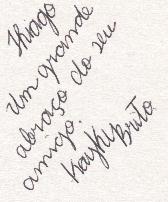 Thiago
Um grande
abraço do seu
amigo.
Kayky Brito